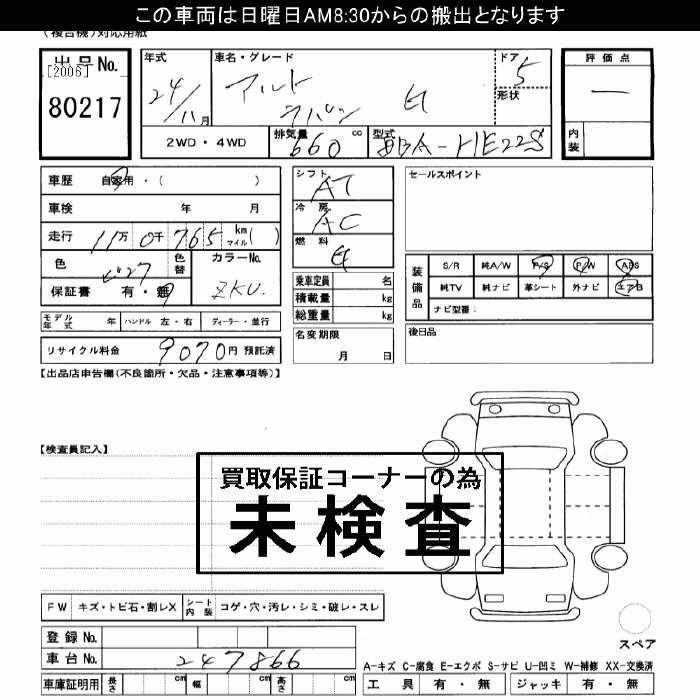 この車両は日曜日AM8:30からの搬出となります
(複合機)対応用紙
出品No.
[2006]
80217
年式
24/11月
車名・グレード
アルト
ラパン
G
ドア
5
形状
評価点
—
内装
2WD・4WD
排気量 660 cc
型式 DBA-HE22S
車歴 自家用・( )
車検 年 月
走行 11万 0千 765 km マイル( )
色
色替
カラーNo.
ZKU.
保証書 有・無
モデル年式 年 ハンドル 左・右 ディーラー・並行
リサイクル料金 9070円 預託済
シフト AT
冷房 AC
燃料 G
乗車定員 名
積載量 kg
総重量 kg
名変期限
月 日
セールスポイント
装備品
S/R 純A/W P/S P/W ABS
純TV 純ナビ 革シート 外ナビ エアB
ナビ型番:
後日品
【出品店申告欄(不良箇所・欠品・注意事項等)】
【検査員記入】
買取保証コーナーの為
未検査
FW キズ・トビ石・割レX シート内装 コゲ・穴・汚レ・シミ・破レ・スレ
登録No.
車台No. 247866
車庫証明用 長さ cm 幅 cm 高さ cm
スペア
A-キズ C-腐食 E-エクボ S-サビ U-凹ミ W-補修 XX-交換済
工具 有・無 ジャッキ 有・無